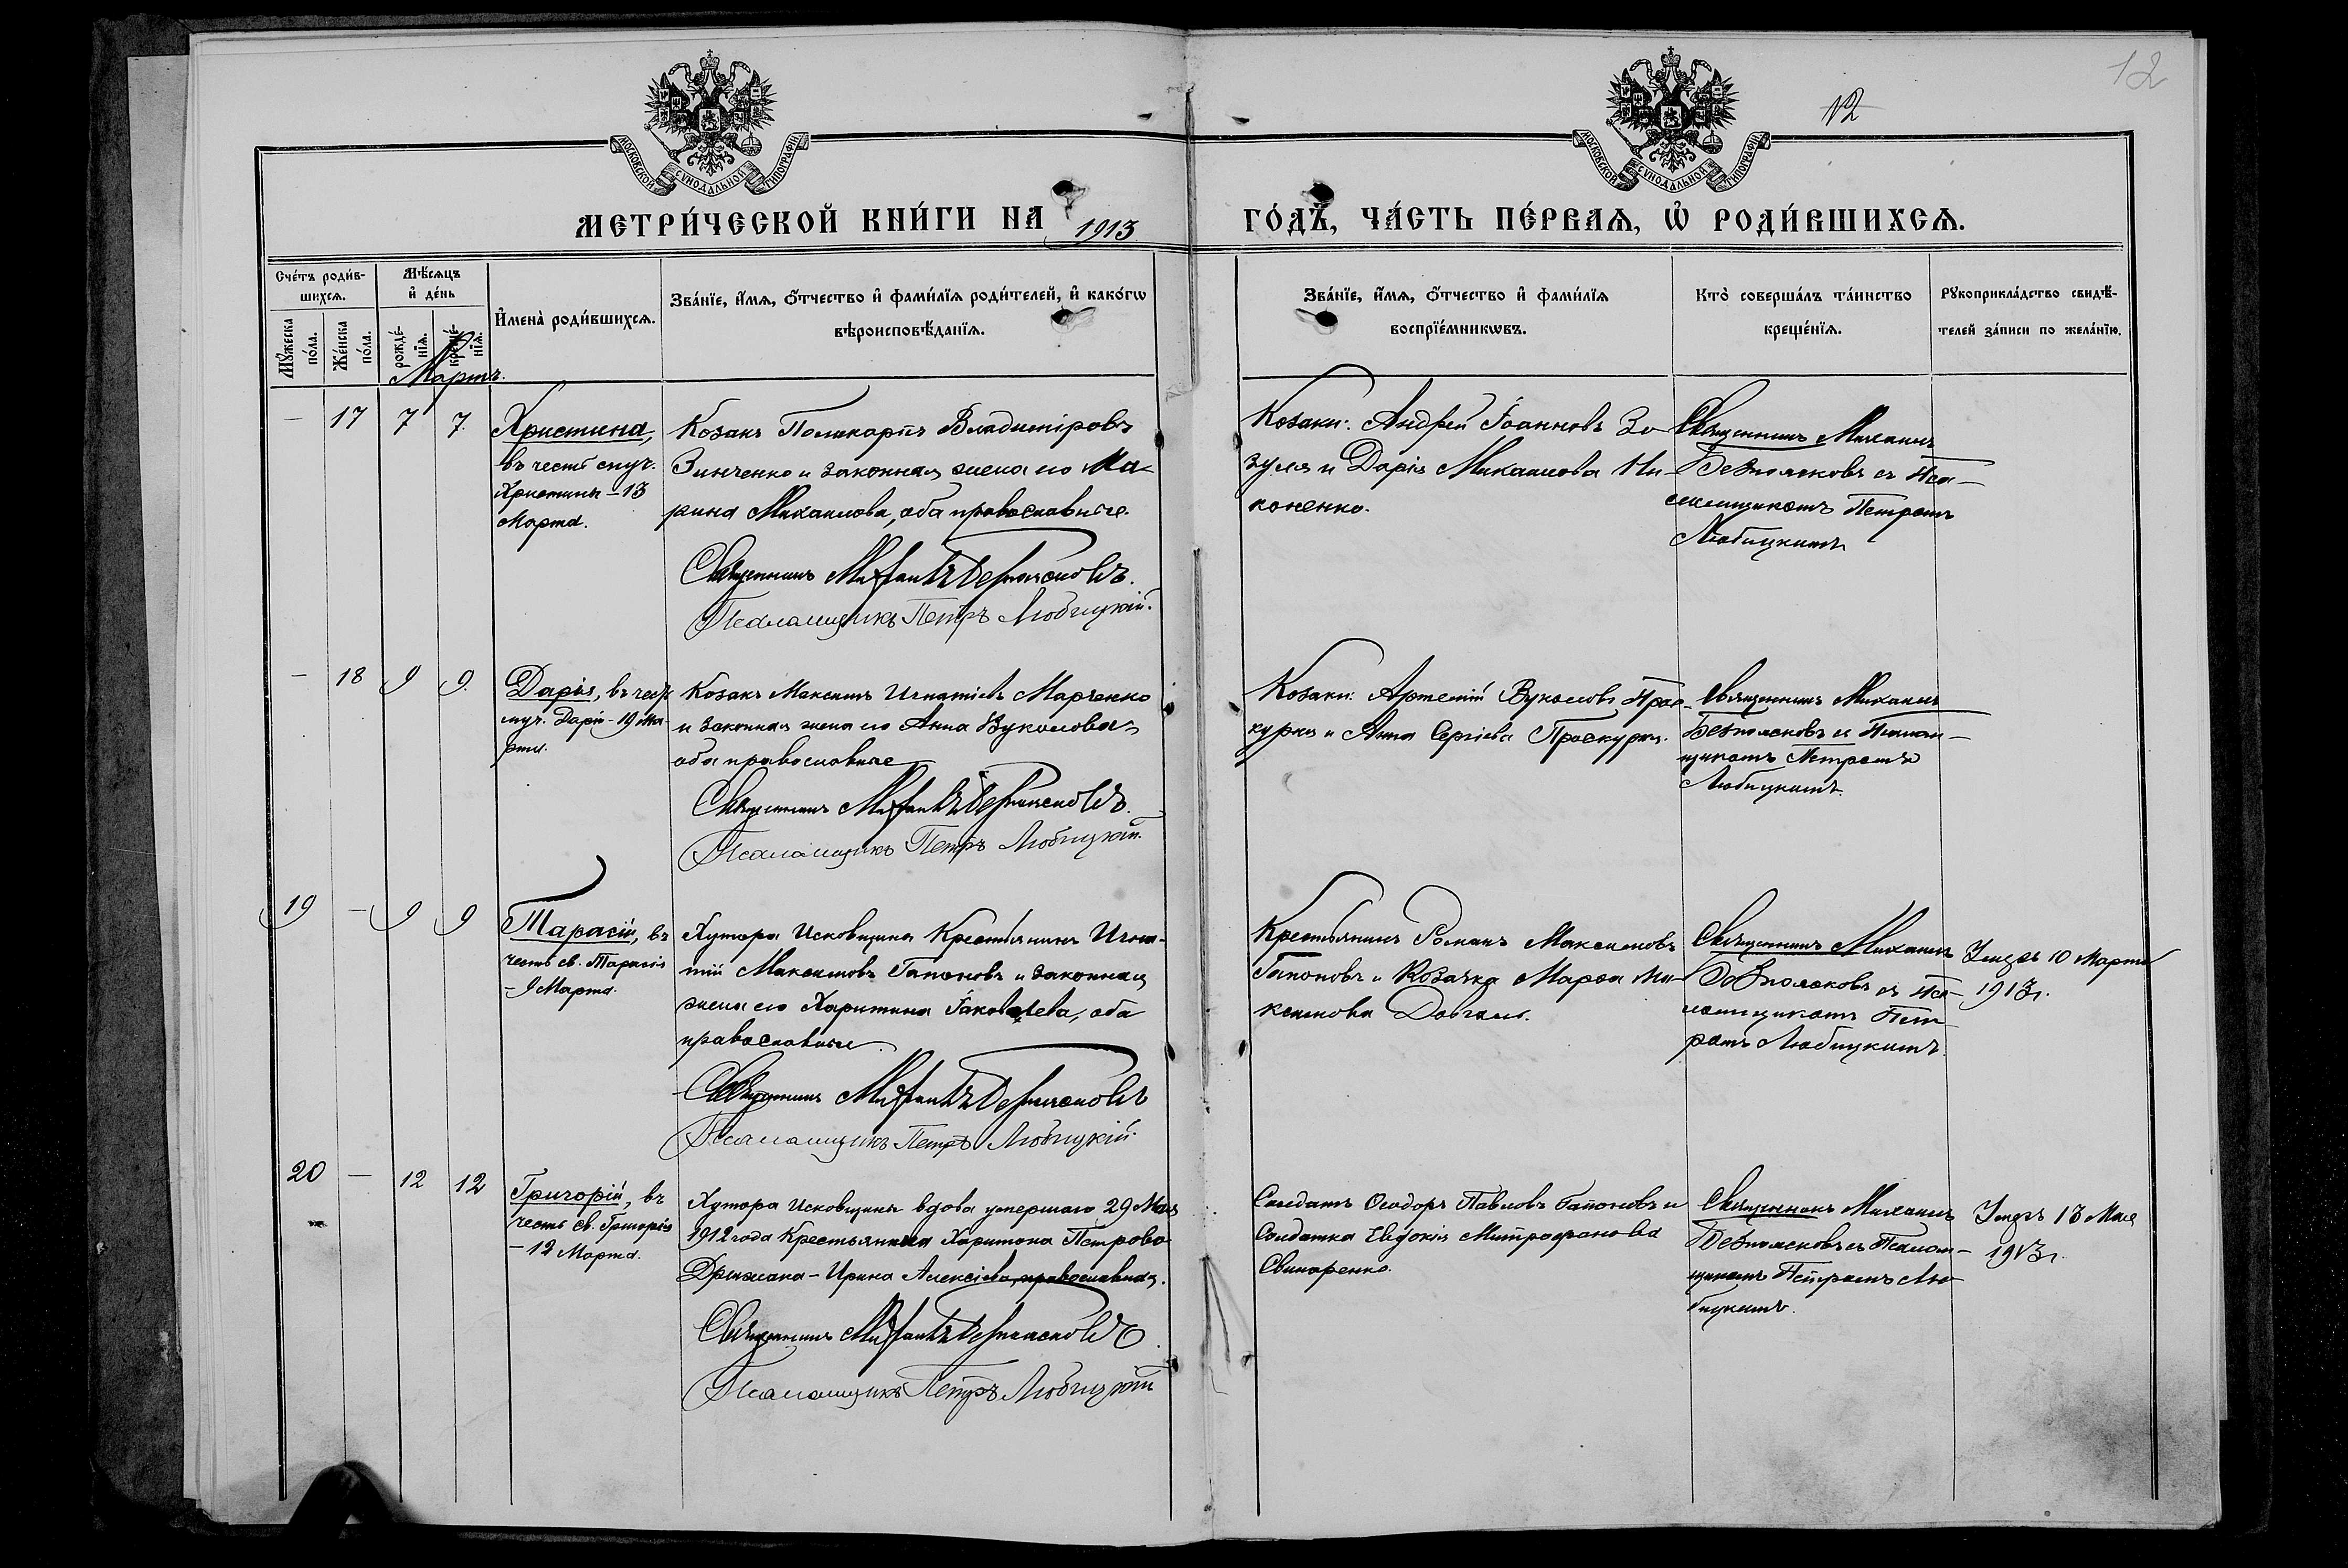 12
12
МОСКОВСКОЙ СУНОДАЛЬНОЙ ТИПОГРАФІИ
МОСКОВСКОЙ СУНОДАЛЬНОЙ ТИПОГРАФІИ
МЕТРИ́ЧЕСКОЙ КНИ́ГИ НА 1913 ГО́ДЪ, ЧА́СТЬ ПЕ́РВАѦ, Ѡ҆ РОДИ́ВШИХСѦ.
Сче́тъ роди́в-
шихсѧ.
Мꙋ́жеска
по́ла.
Же́нска
по́ла.
Мѣ́сѧцъ
и҆ де́нь
рожде́-
нїѧ.
креще́-
нїѧ.
И҆мена̀ роди́вшихсѧ.
Зва́нїе, и҆́мѧ, ѻ҆́тчество и҆ фами́лїѧ роди́телей, и҆ како́гѡ
вѣроисповѣ́данїѧ.
Зва́нїе, и҆́мѧ, ѻ҆́тчество и҆ фами́лїѧ
воспрїе́мникѡвъ.
Кто̀ соверша́лъ та́инство
креще́нїѧ.
Рꙋкоприкла́дство свидѣ́-
телей за́писи по жела́нїю.
Мартъ.
— 17 7 7.
Христина,
въ честь муч.
Христины – 13
Марта.
Козакъ Поликарпъ Владиміровъ
Зинченко и законная жена его Ма-
рина Михаилова, оба православные.
Священникъ Михаилъ Безпоясковъ.
Псаломщикъ Петръ Любицкій.
Козаки: Андрей Іоанновъ Зо-
зуля и Дарія Михаилова Ни-
коненко.
Священникъ Михаилъ
Безпоясковъ съ Пса-
ломщикомъ Петромъ
Любицкимъ
— 18 9 9.
Дарія, въ честь
муч. Даріи – 19 Ма-
рта.
Козакъ Максимъ Игнатіевъ Марченко
и законная жена его Анна Вуколова,
оба православные
Священникъ Михаилъ Безпоясковъ.
Псаломщикъ Петръ Любицкій.
Козаки: Артемій Вуколовъ Прос-
курня и Анна Сергіева Проскурня.
Священникъ Михаилъ
Безпоясковъ съ Псалом-
щикомъ Петромъ
Любицкимъ.
19 — 9 9
Тарасій, въ
честь св. Тарасія
– 9 Марта.
Хутора Исковщина Крестьянинъ Игна-
тій Максимовъ Гапоновъ и законная
жена его Харитина Іаковлева, оба
православные
Священникъ Михаилъ Безпоясковъ
Псаломщикъ Петръ Любицкій.
Крестьянинъ Романъ Максимовъ
Гапоновъ и Козачка Марѳа Ма-
ксимова Довгаль.
Священникъ Михаилъ
Безпоясковъ съ Пса-
ломщикомъ Пет-
ромъ Любицкимъ.
Умеръ 10 Марта
1913г.
20 — 12 12
Григорій, въ
честь св. Григорія
– 12 Марта.
Хутора Исковщины вдова умершаго 29 Мая
1912 года Крестьянина Харитона Петрова
Дрижака – Ирина Алексіева, православная.
Священникъ Михаилъ Безпоясковъ
Псаломщикъ Петръ Любицкій
Солдатъ Ѳеодоръ Павловъ Гапоновъ и
Солдатка Евдокія Митрофанова
Свинаренко.
Священникъ Михаилъ
Безпоясковъ съ Псалом-
щикомъ Петромъ Лю-
бицкимъ.
Умеръ 13 Мая
1913г.